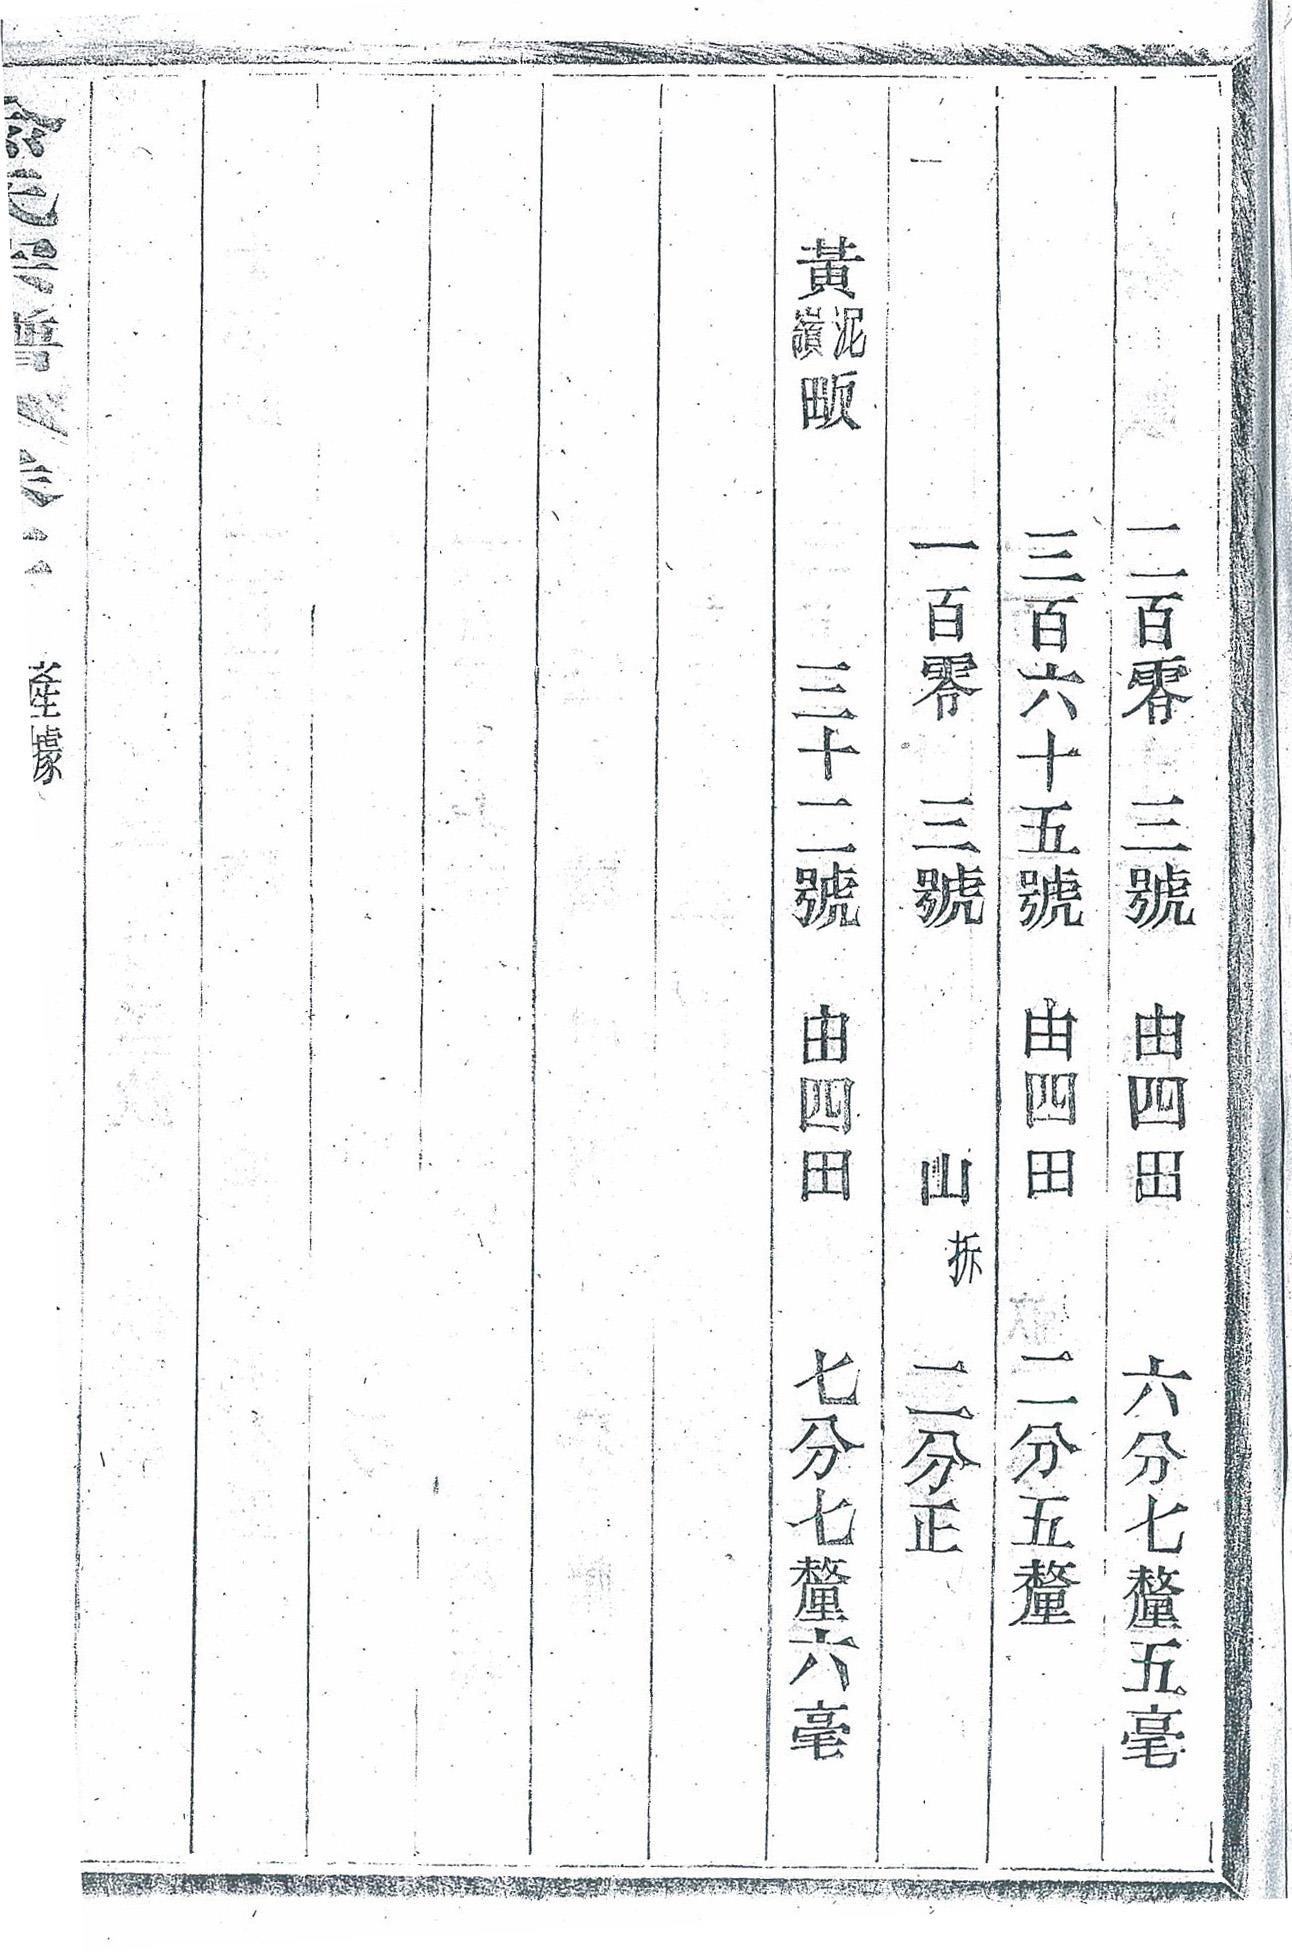 二百零三號 由四田 六分七釐五毫
三百六十五號 由四田 二分五釐
一百零三號 山拆 二分正
黃泥嶺畈 三十二號 由四田 七分七釐六毫
產據